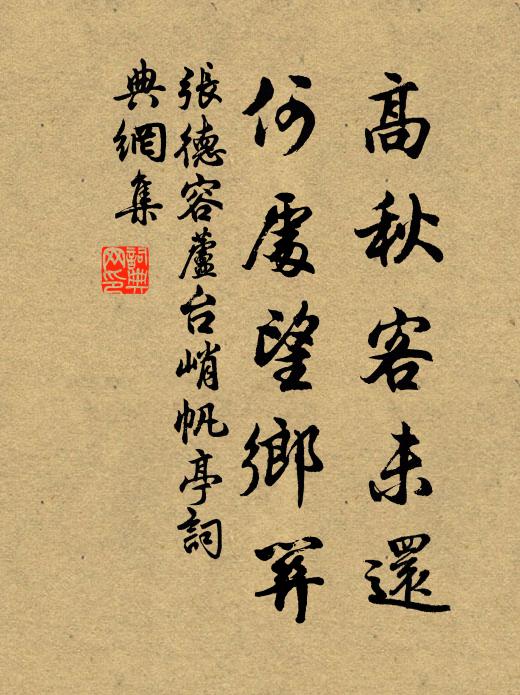 髙秋客未還
何處望鄉關
張德容蘆台峭帆亭詞
典網集
詞典
网印